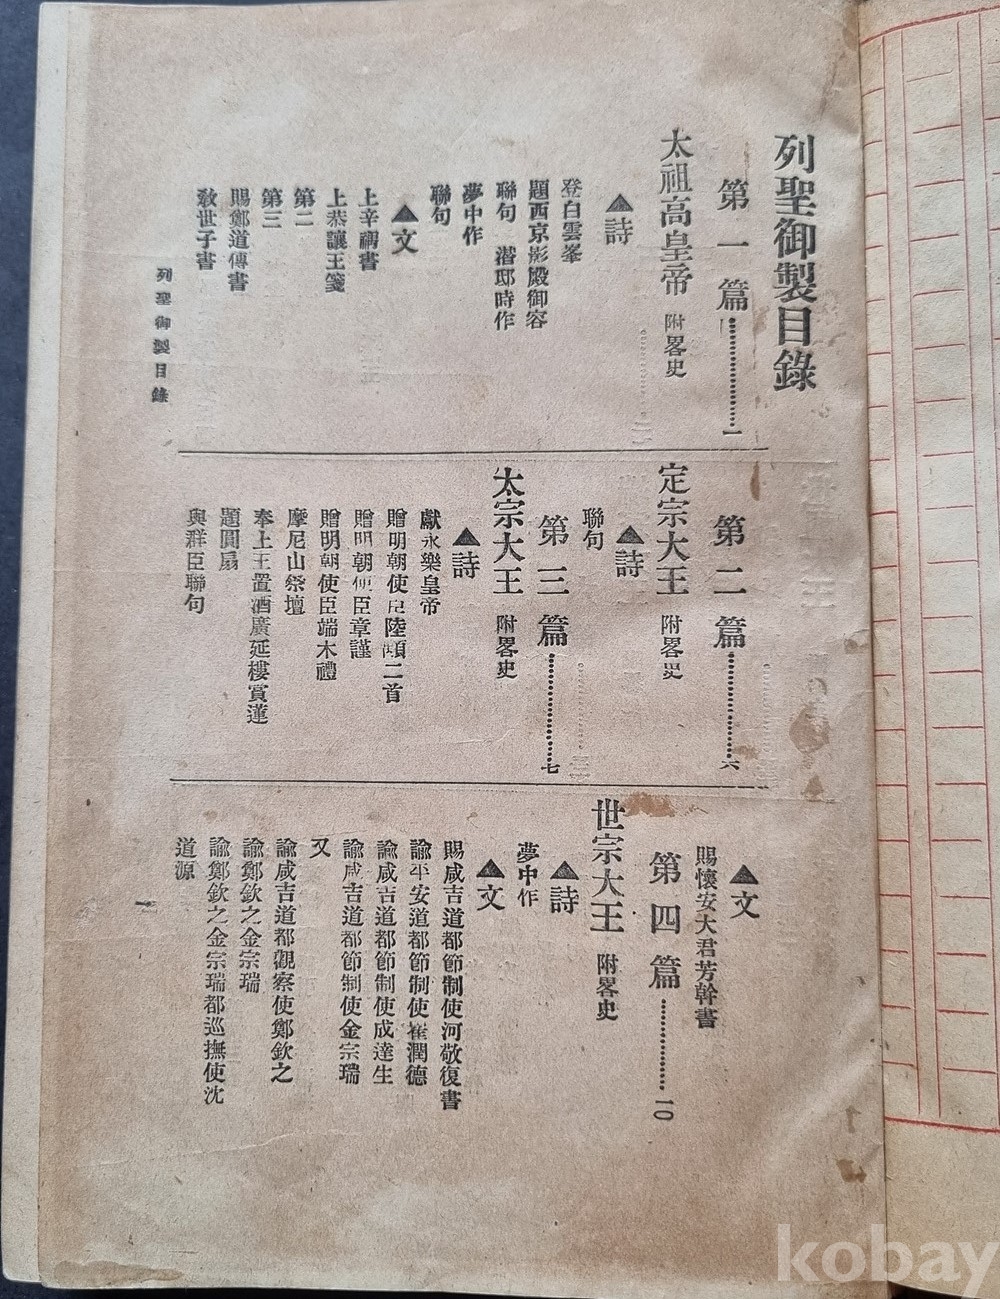 列聖御製目錄
第一篇…………一
太祖高皇帝 附畧史
▲詩
登白雲峯
題西京影殿御容
聯句 潜邸時作
夢中作
聯句
▲文
上辛禑書
上恭讓王箋
第二
第三
賜鄭道傳書
敎世子書
列聖御製目錄
第二篇…………六
定宗大王 附畧史
▲詩
聯句
第三篇…………七
太宗大王 附畧史
▲詩
獻永樂皇帝
贈明朝使臣陸顒二首
贈明朝使臣章謹
贈明朝使臣端木禮
摩尼山祭壇
奉上王置酒廣延樓賞蓮
題圓扇
與群臣聯句
▲文
賜懷安大君芳幹書
第四篇…………一〇
世宗大王 附畧史
▲詩
夢中作
▲文
賜咸吉道都節制使河敬復書
諭平安道都節制使崔潤德
諭咸吉道都節制使成達生
諭咸吉道都節制使金宗瑞
又
諭咸吉道都觀察使鄭欽之
諭鄭欽之金宗瑞
諭鄭欽之金宗瑞都巡撫使沈
道源
一
kobay